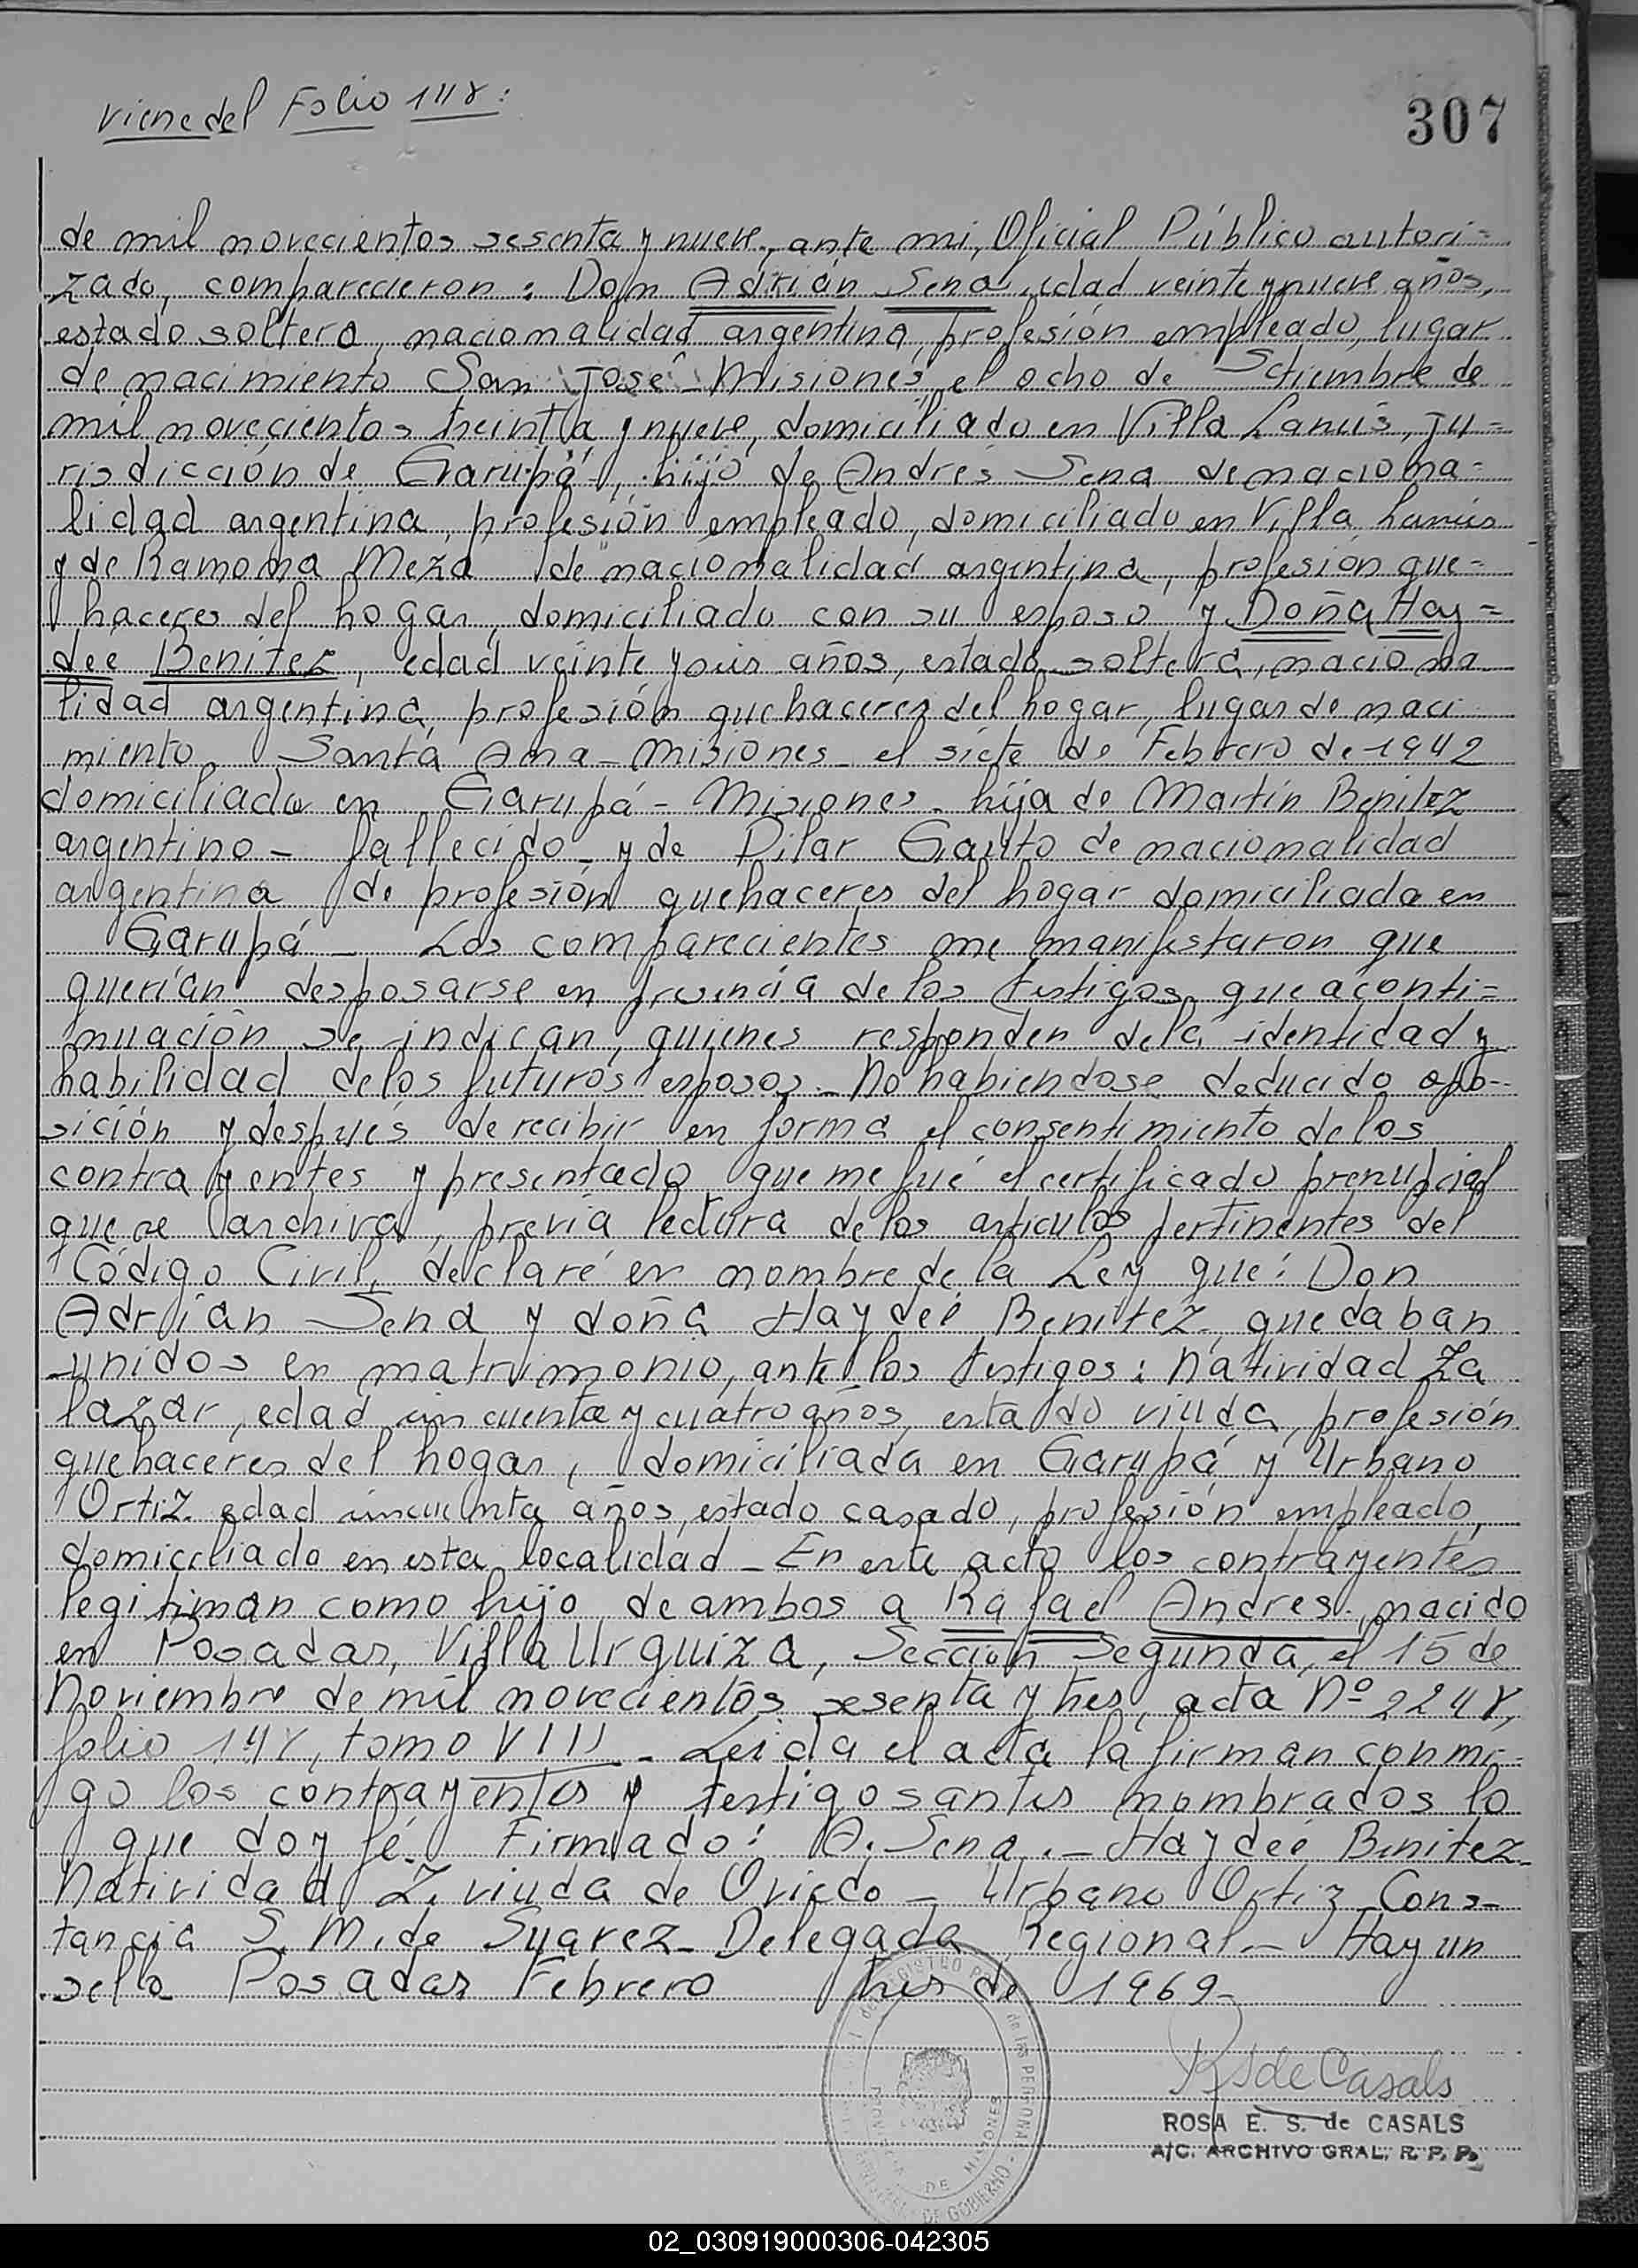 Viene del Folio 118:
307
de mil novecientos sesenta y nueve, ante mi, Oficial Público autori=
zado, comparecieron: Don Adrián Sena, edad veinte y nueve años,
estado soltero, nacionalidad argentina, profesión empleado, lugar
de nacimiento San José - Misiones, el ocho de Setiembre de
mil novecientos treinta y nueve, domiciliado en Villa Lanús, ju=
risdicción de Garupá, hijo de Andrés Sena de naciona=
lidad argentina, profesión empleado, domiciliado en Villa Lanús
y de Ramona Meza de nacionalidad argentina, profesión que=
haceres del hogar, domiciliado con su esposo y Doña Hay=
deé Benitez, edad veinte y seis años, estado soltera, naciona
lidad argentina, profesión quehaceres del hogar, lugar de naci
miento Santa Ana - Misiones - el siete de Febrero de 1942
domiciliada en Garupá - Misiones - hija de Martín Benitez
argentino - fallecido - y de Pilar Gauto de nacionalidad
argentina de profesión quehaceres del hogar domiciliada en
Garupá - Los comparecientes me manifestaron que
querían desposarse en presencia de los testigos que a conti=
nuación se indican, quienes responden de la identidad y
habilidad de los futuros esposos - No habiendose deducido opo-
sición y después de recibir en forma el consentimiento de los
contrayentes y presentado que me fué el certificado prenupcial
que se archiva, previa lectura de los artículos pertinentes del
Código Civil, declaré en nombre de la Ley que: Don
Adrián Sena y doña Haydeé Benitez, quedaban
unidos en matrimonio, ante los testigos: Natividad Za
lazar, edad cincuenta y cuatro años, estado viuda, profesión
quehaceres del hogar, domiciliada en Garupá y Urbano
Ortiz edad cincuenta años, estado casado, profesión empleado,
domiciliado en esta localidad - En este acto los contrayentes
legitiman como hijo de ambos a Rafael Andres, nacido
en Posadas, Villa Urquiza, Sección Segunda, el 15 de
Noviembre de mil novecientos sesenta y tres, acta Nº 2248,
folio 148, tomo VIII - Leida el acta la firman conmi-
go los contrayentes y testigos antes nombrados lo
que doy fé. Firmado: A. Sena. - Haydeé Benitez -
Natividad Z. viuda de Oviedo - Urbano Ortiz Cons-
tancia S. M. de Suarez - Delegada Regional - Hay un
sello Posadas Febrero tres de 1969 -
RSde Casals
ROSA E. S. de CASALS
A/C. ARCHIVO GRAL. R. P. P.
PROVINCIA DE MISIONES
02_030919000306-042305